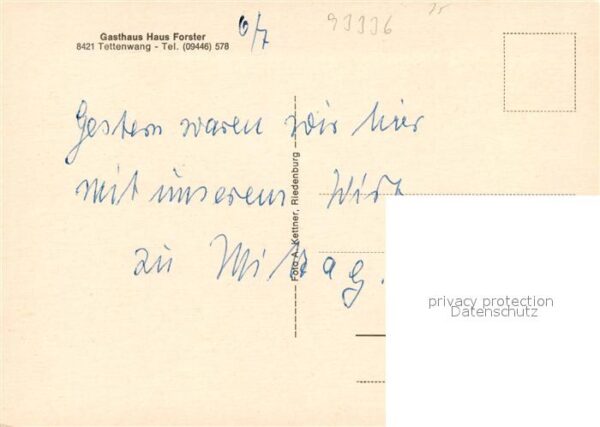 Gasthaus Haus Forster
8421 Tettenwang - Tel. (09446) 578
6/7
93336
Gestern waren wir hier
mit unserem Wirt
zu Mittag.
Foto A. Kettner, Riedenburg
privacy protection
Datenschutz